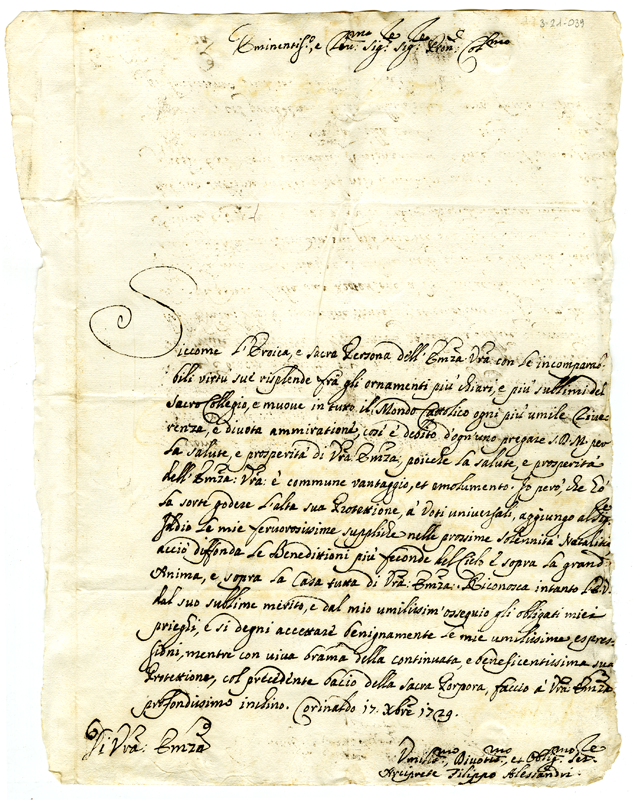 3-21-039
Eminentiss:º, e Rev:mo Sig:re Sig:re Pron: Col:mo
Siccome l'Eroica, e sacra Persona dell'Emza Vra con le incompara-
bili virtu sue risplende frà gli ornamenti più chiari, e più sublimi del
Sacro Collegio, e muove in tutto il Mondo Cattolico ogni più umile Rive-
renza, e divota ammiratione, così è debito d'ogn'uno pregare S.D.M. per
la salute, e prosperità di Vra Emza; poiche la salute, e prosperità
dell'Emza: Vra: è commune vantaggio, et emolumento. Io però, che hò
la sorte godere l'alta sua Protettione, à voti universali, aggiungo al
Iddio le mie fervorosissime suppliche nelle prossime solennità Natalitie
acciò diffonda le Beneditioni più feconde del Cielo e sopra la grand'
Anima, e sopra la Casa tutta di Vra: Emza: Riconosca intanto l'E.V.
dal suo sublime merito, e dal mio umilissim'ossequio gli obligati miei
prieghi, e si degni accettare benignamente le mie umilissime espres-
sioni, mentre con viva brama della continuata, e beneficentissima sua
Protettione, col precedente bacio della Sacra Porpora, faccio à Vra: Emza
profondissimo inchino. Corinaldo 17. Xbre 1729.
Di Vra: Emza
Umilis:mo, Divotis:mo, et Oblig:mo Ser:re
Arciprete Filippo Alessandri.